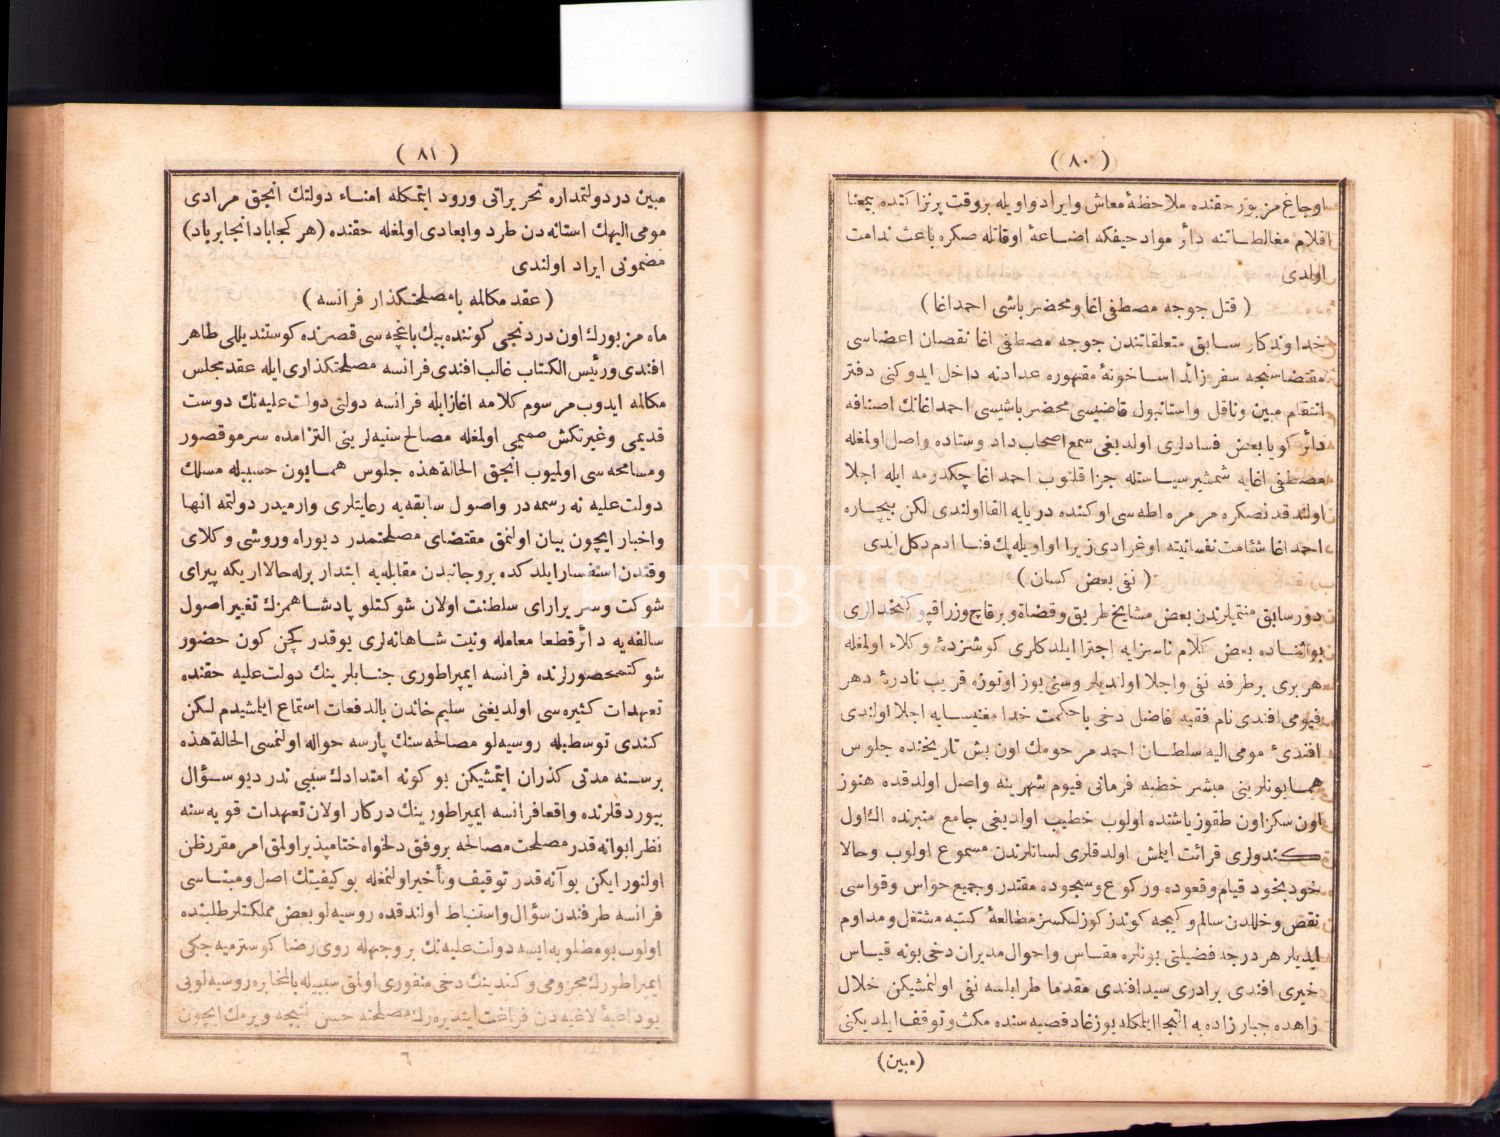 ( ٨٠ )
اوجاغ مزبور حقنده ملاحظهٔ معاش وايراد واويله بروقت پرنزاكتده بيمعنا
اقلام مغالطاتنه دائر مواد حيفكه اضاعهٔ اوقاتله صكره باعث ندامت
اولدى
( قتل جوجه مصطفى اغا ومحضر باشى احمد اغا )
خداوندكار سابق متعلقاتندن جوجه مصطفى اغا نقصان اعضاسى
مقتضاسنجه سفر زائد اساخونهٔ مقهوره عدادنه داخل ايدوكنى دفتر
انتقام مبين وناقل واستانبول قاضيسى محضر باشيسى احمد اغانك اصنافه
دائر كويا بعض فسادلرى اولديغى سمع اصحاب داد وستاده واصل اولمغله
مصطفى اغايه شمشير سياستله جزا قلنوب احمد اغا چكدرمه ايله اجلا
اولندقدنصكره مرمره اطه سى اوكنده دريايه القا اولندى لكن بيچاره
احمد اغا شئامت نفسانيته اوغرادى زيرا اواويله پك فنا ادم دكل ايدى
( نفى بعض كسان )
دور سابق منتميلرندن بعض مشايخ طريق وقضاة وبرقاچ وزرا قپو كتخدالرى
بواثناده بعض كلام ناسزايه اجترا ايلدكلرى كوشزدهٔ وكلاء اولمغله
هر برى بر طرفه نفى واجلا اولنديلر وسنى يوز اوتوزه قريب نادرهٔ دهر
فيومى افندى نام فقيه فاضل دخى باحكمت خدا مغنيسايه اجلا اولندى
افندئ مومى اليه سلطان احمد مرحومك اون بش تاريخنده جلوس
همايونلرينى مبشر خطبه فرمانى فيوم شهرينه واصل اولدقده هنوز
اون سكزاون طقوز ياشنده اولوب خطيب اولديغى جامع منبرنده اك اول
كندولرى قرائت ايلمش اولدقلرى لسانلرندن مسموع اولوب وحالا
خود بخود قيام وقعوده وركوع وسجوده مقتدر وجميع حواس وقواسى
نقص وخللدن سالم وكيجه كوندز كوزلكسز مطالعهٔ كتبه مشتغل ومداوم
ايديلر هر درجه فضيلتى بونلره مقاس واحوال مدبران دخى بونه قياس
خيرى افندى برادرى سيد افندى مقدما طرابلسه نفى اولنمشيكن خلال
راهده جبار زاده به التجا ايلمكله يوزغاد قصبه سنده مكث وتوقف ايلديكنى
(مبين)
( ٨١ )
مبين دردولتمداره تحريراتى ورود ايتمكله امناء دولتك انجق مرادى
مومى اليهك استانه دن طرد وابعادى اولمغله حقنده (هر كجا باد انجا برباد)
مضمونى ايراد اولندى
( عقد مكالمه با مصلحتكذار فرانسه )
ماه مزبورك اون دردنجى كوننده بيك باغچه سى قصرنده كوستنديللى طاهر
افندى ورئيس الكتاب غالب افندى فرانسه مصلحتكذارى ايله عقد مجلس
مكالمه ايدوب مرسوم كلامه اغاز ايله فرانسه دولتى دولت عليه نك دوست
قديمى وغيرتكش صميمى اولمغله مصالح سنيه لرينى التزامده سرمو قصور
ومسامحه سى اولميوب انجق الحالة هذه جلوس همايون حسبيله مسلك
دولت عليه نه رسمه در واصول سابقه يه رعايتلرى وارميدر دولتمه انها
واخبار ايچون بيان اولنمق مقتضاى مصلحتمدر ديو راه وروشى وكلاى
وقتدن استفسار ايلدكده بروجانبدن مقابله يه ابتدار برله حالا اريكه پيراى
شوكت وسرير اراى سلطنت اولان شوكتلو پادشاهمزك تغيير اصول
سالفه يه دائر قطعا معامله ونيت شاهانه لرى يوقدر كچن كون حضور
شوكتمحصورلرنده فرانسه ايمپراطورى جنابلرينك دولت عليه حقنده
تعهدات كثيره سى اولديغى سليم خاندن بالدفعات استماع ايلمشيدم لكن
كندى توسطيله روسيه لو مصالحه سنك پارسه حواله اولنمسى الحالة هذه
برسنه مدتى كذران ايتمشيكن بو كونه امتدادك سببى ندر ديو سؤال
بيوردقلرنده واقعا فرانسه ايمپراطورينك دركار اولان تعهدات قويه سنه
نظرا بوانه قدر مصلحت مصالحه بروفق دلخواه ختامپذير اولمق امر مقرر ظن
اولنور ايكن بوآنه قدر توقيف وتأخير اولنمغله بو كيفيتك اصل ومبناسى
فرانسه طرفندن سؤال واستنباط اولندقده روسيه لو بعض مملكتلر طلبنده
اولوب بو مطلوبه ايسه دولت عليه نك بروجهله روى رضا كوسترميه جكى
ايمپراطورك مجزومى وكندينك دخى منفورى اولمق سببيله بالمخابره روسيه لويى
بو داعيهٔ لاغيه دن فراغت ايتديره رك مصلحته حسن نتيجه ويرمك ايچون
٦